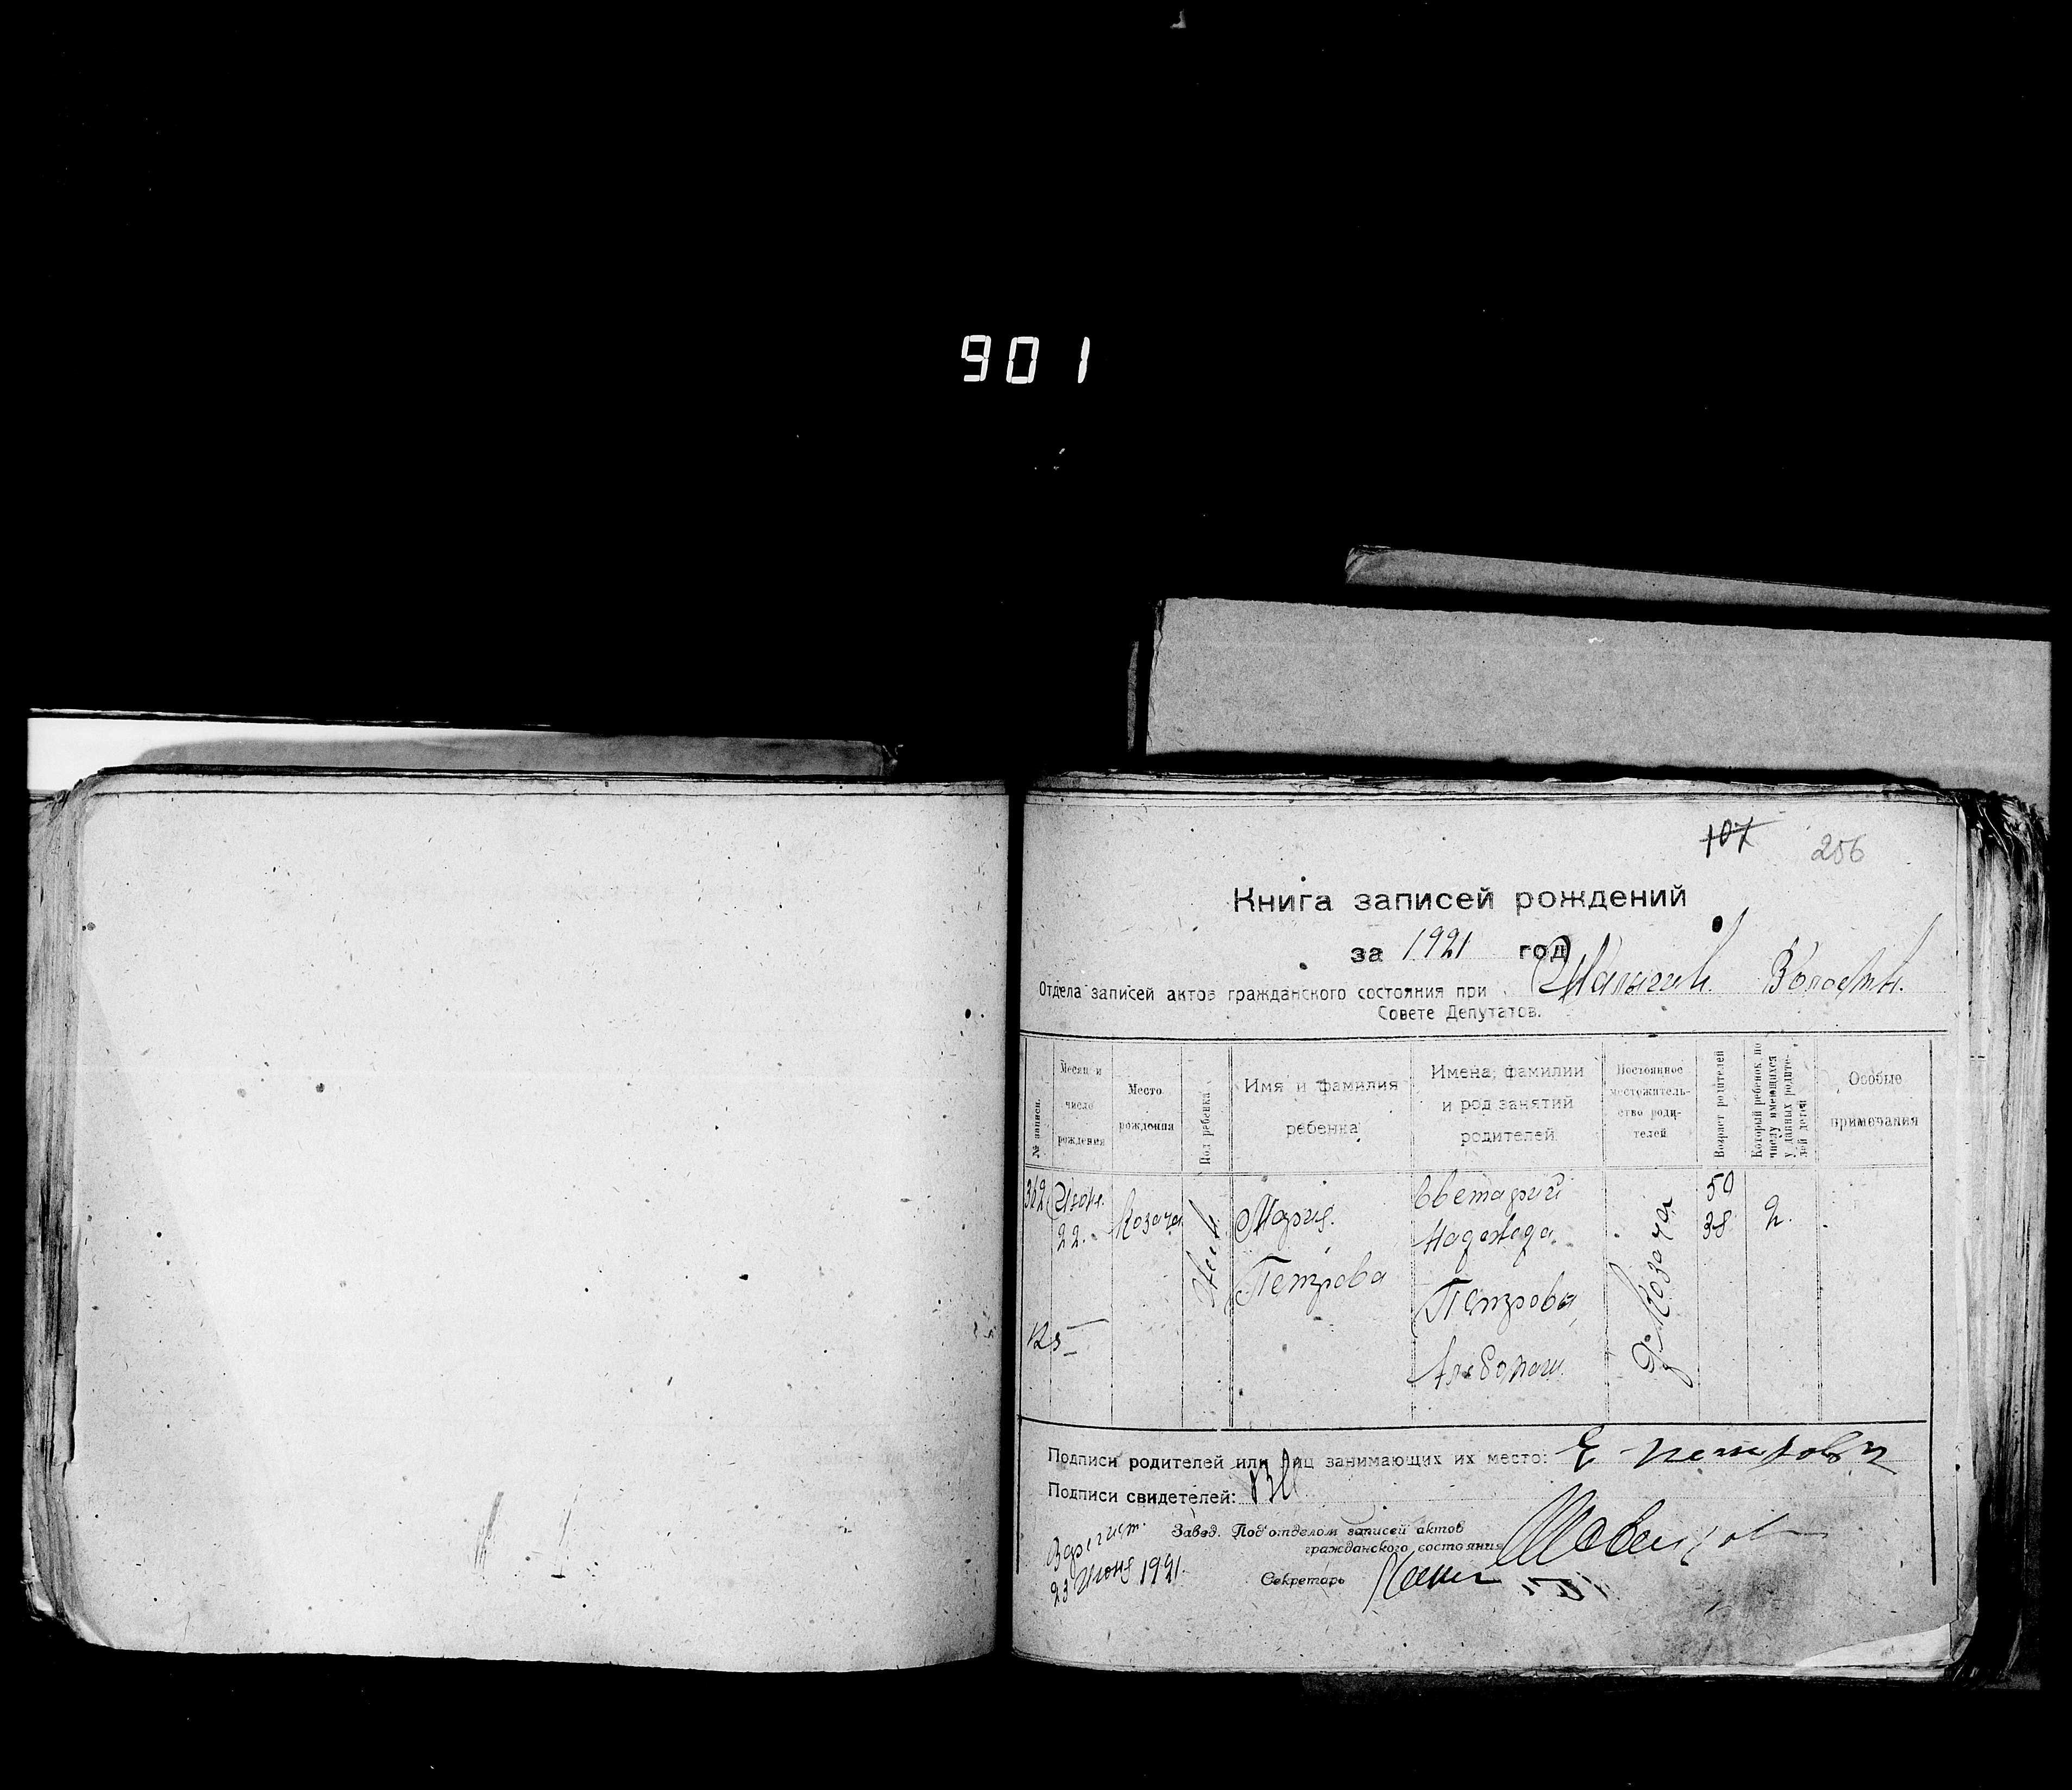 901
107 256
Книга записей рождений
за 1921 год
Отдела записей актов гражданского состояния при Шалыгин. Волостн.
Совете Депутатов.
№ записи.
Месяц и число рождения
Место рождения
Пол ребенка
Имя и фамилия ребенка
Имена, фамилии и род занятий родителей
Постоянное местожительство родителей
Возраст родителей
Который ребенок по числу имеющихся у данных родителей детей
Особые примечания
312
Июн. 22.
Козача
Жен.
Мария.
Петрова
Евстафий
Надежда
Петрова
Хлебопаш.
д. Козача
50
38
2.
125
Подписи родителей или лиц занимающих их место: Е Петрова
Подписи свидетелей:
Завед. Подотделом записей актов
гражданского состояния
Секретарь
Зарегист.
23 Июня 1921.